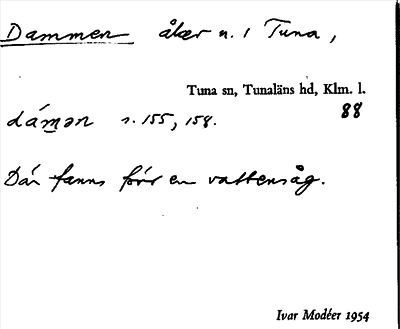 Dammen åker n. 1 Tuna,
Tuna sn, Tunaläns hd, Klm. l.
dám̲ən s. 155, 158. 88
Där fanns förr en vattensåg.
Ivar Modéer 1954